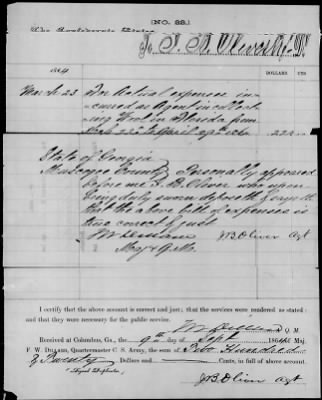 [NO. 22.]
The Confederate States
To J. B. Oliver Agt Dr.
1864 DOLLARS CTS
March 23 For Actual expenses in-
curred as Agent in collect-
ing Wool in Florida from
March 22d to April 29th 1864 220
State of Georgia
Muscogee County Personally appeared
before me J. B. Oliver who upon
being duly sworn deposeth & saith
that the above bill of expenses is
true correct & just
FW Dillard JB Oliver Agt
Maj & Q.M.
I certify that the above account is correct and just; that the services were rendered as stated
and that they were necessary for the public service.
FW Dillard Q. M.
Received at Columbus, Ga., the 9th day of Sept 1864 of Maj.
F. W. Dillard, Quartermaster C. S. Army, the sum of Two Hundred
& Twenty Dollars and Cents, in full of above account.
(Signed Duplicate)
JB Oliver Agt